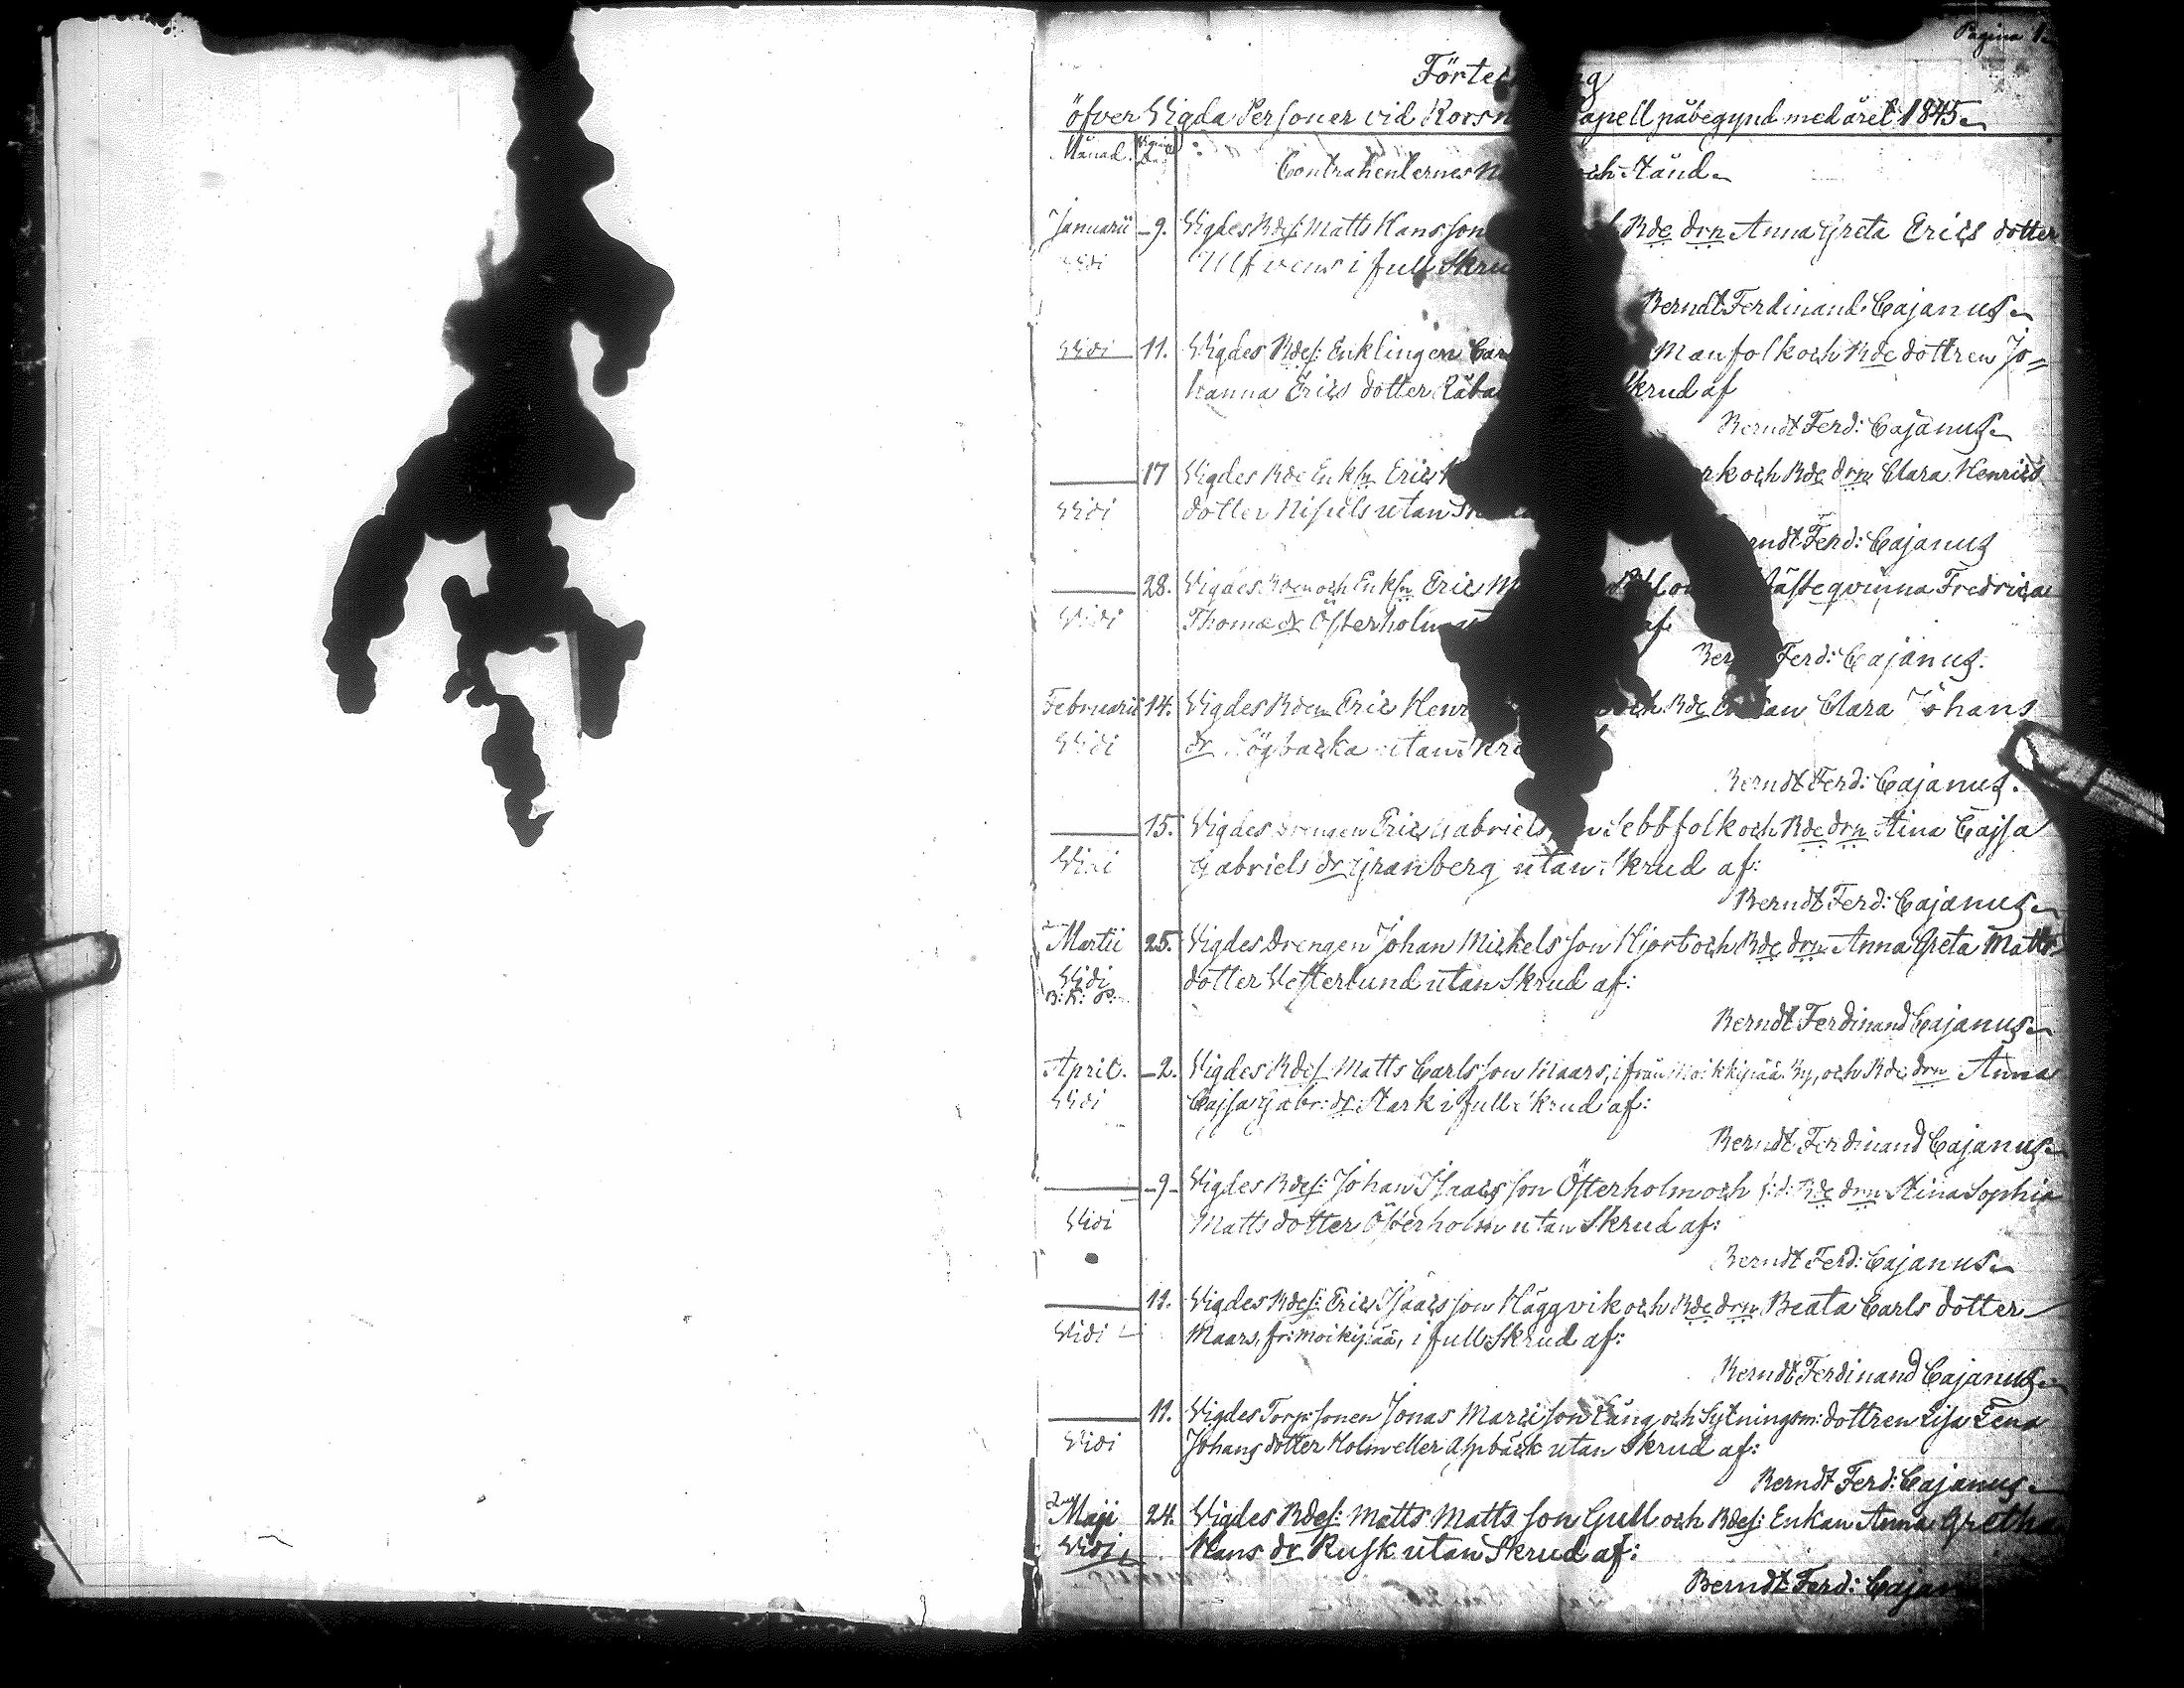 Pagina 1.
Förte ng
öfver Vigda Personer vid Korsn apell påbegynd med året 1845
Månad.
Contrahenternes N och Stånd
Januarii 9. Vigdes Bdes: Matts Hansson Bde drn Anna Greta Erics dotter
Vidi Ulfvens i full Skru
Berndt Ferdinand Cajanus
Vidi 11. Vigdes Bdes: Enklingen Car Manfolk och Bde dottren Jo=
hanna Erics dotter Råba Skrud af
Berndt Ferd: Cajanus
17 Vigdes Bde Enksn Eric rk och Bde drn Clara Henrics
Vidi dotter Nissils utan Sk
rndt Ferd: Cajanus
28. Vigdes Bden och Enksn Eric M qvinna Fredrica
Vidi Thomæ dr Österholm af
Ber Ferd: Cajanus.
Februarii 14. Vigdes Bden Eric Henr och Bde Enkan Clara Johans
Vidi dr Högbacka utan Skr
Berndt Ferd: Cajanus.
15. Vigdes Drengen Eric Gabriels n Sebbfolk och Bde drn Stina Cajsa
Vidi Gabriels dr Granberg utan Skrud af:
Berndt Ferd: Cajanus
Martii 25. Vigdes Drengen Johan Mickels son Hjort och Bde drn Anna Greta Matts
Vidi dotter Vesterlund utan Skrud af:
Berndt Ferdinand Cajanus
April. 2. Vigdes Bdes Matts Carls son Maars, ifrån Moikipää By, och Bde drn Anna
Vidi Cajsa Gabr: dr: Stark i full skrud af:
Berndt Ferdinand Cajanus
9 Vigdes Bdes: Johan Isaacs son Österholm och Bde drn Stina Sophia
Vidi Matts dotter Österholm utan Skrud af:
Berndt Ferd: Cajanus
11. Vigdes Bdes: Eric Isaacs son Häggvik och Bde drn Beata Carls dotter
Vidi Maars, fr: Moikipää, i full Skrud af:
Berndt Ferdinand Cajanus
11. Vigdes Torp: sonen Jonas Marci son Lång och Sytningsm: dottren Lisa Lena
Vidi Johans dotter Holm eller Aspbäck utan Skrud af:
Berndt Ferd: Cajanus
Maji 24. Vigdes Bdes: Matts Matts son Gull och Bdes: Enkan Anna Gretha
Vidi Hans dr Rusk utan Skrud af:
Berndt Ferd: Cajan